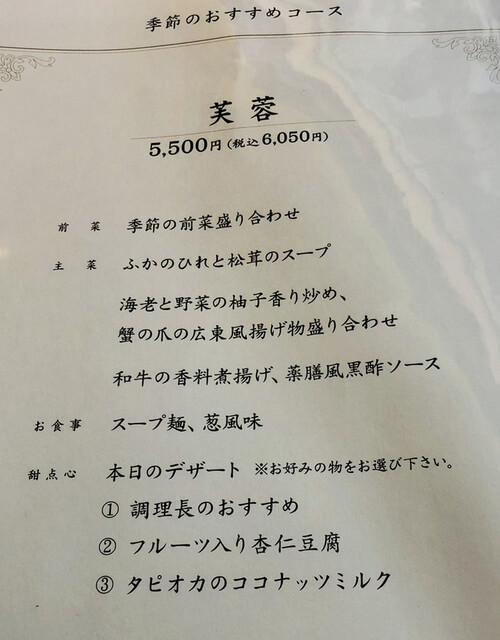 季節のおすすめコース
芙蓉
5,500円(税込6,050円)
前菜 季節の前菜盛り合わせ
主菜 ふかのひれと松茸のスープ
海老と野菜の柚子香り炒め、
蟹の爪の広東風揚げ物盛り合わせ
和牛の香料煮揚げ、薬膳風黒酢ソース
お食事 スープ麺、葱風味
甜点心 本日のデザート ※お好みの物をお選び下さい。
① 調理長のおすすめ
② フルーツ入り杏仁豆腐
③ タピオカのココナッツミルク